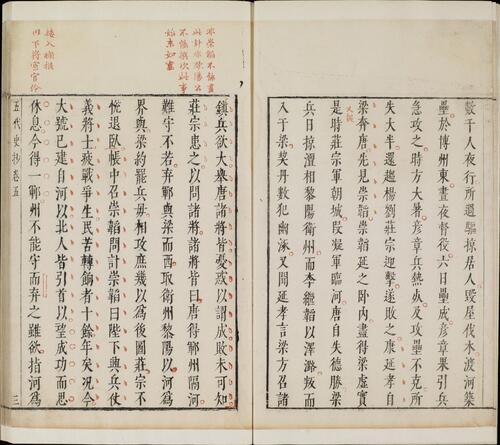 數千人夜行所過驅掠居人毀屋伐木渡河築
壘於博州東晝夜督役六日壘成彥章果引兵
急攻之時方大暑彥章兵熱死及攻壘不克所
失大半還趨楊劉莊宗迎擊遂敗之康延孝自
梁奔唐先見崇韜崇韜延之臥內盡得梁虛實
是時莊宗軍朝城段凝軍臨河唐自失德勝梁
兵日掠澶相黎陽衛州而李繼韜以澤潞叛而
入于梁契丹數犯幽涿又聞延孝言梁方召諸
始末如畫
鎮兵欲大舉唐諸將皆憂惑以謂成敗未可知
莊宗患之以問諸將諸將皆曰唐得鄆州隔河
難守不若棄鄆與梁而西取衛州黎陽以河爲
界與梁約罷兵毋相攻庶幾以爲後圖莊宗不
悅退臥帳中召崇韜問計崇韜曰陛下興兵仗
義將士疲戰爭生民苦轉餉者十餘年矣况今
大號已建自河以北人皆引首以望成功而思
休息今得一鄆州不能守而棄之雖欲指河爲
五代史抄卷五 三